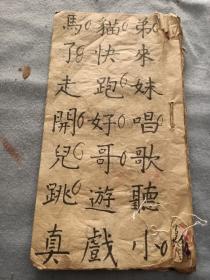 弟來妹唱歌聽小
貓快跑好哥遊戲
馬了走開兒跳真